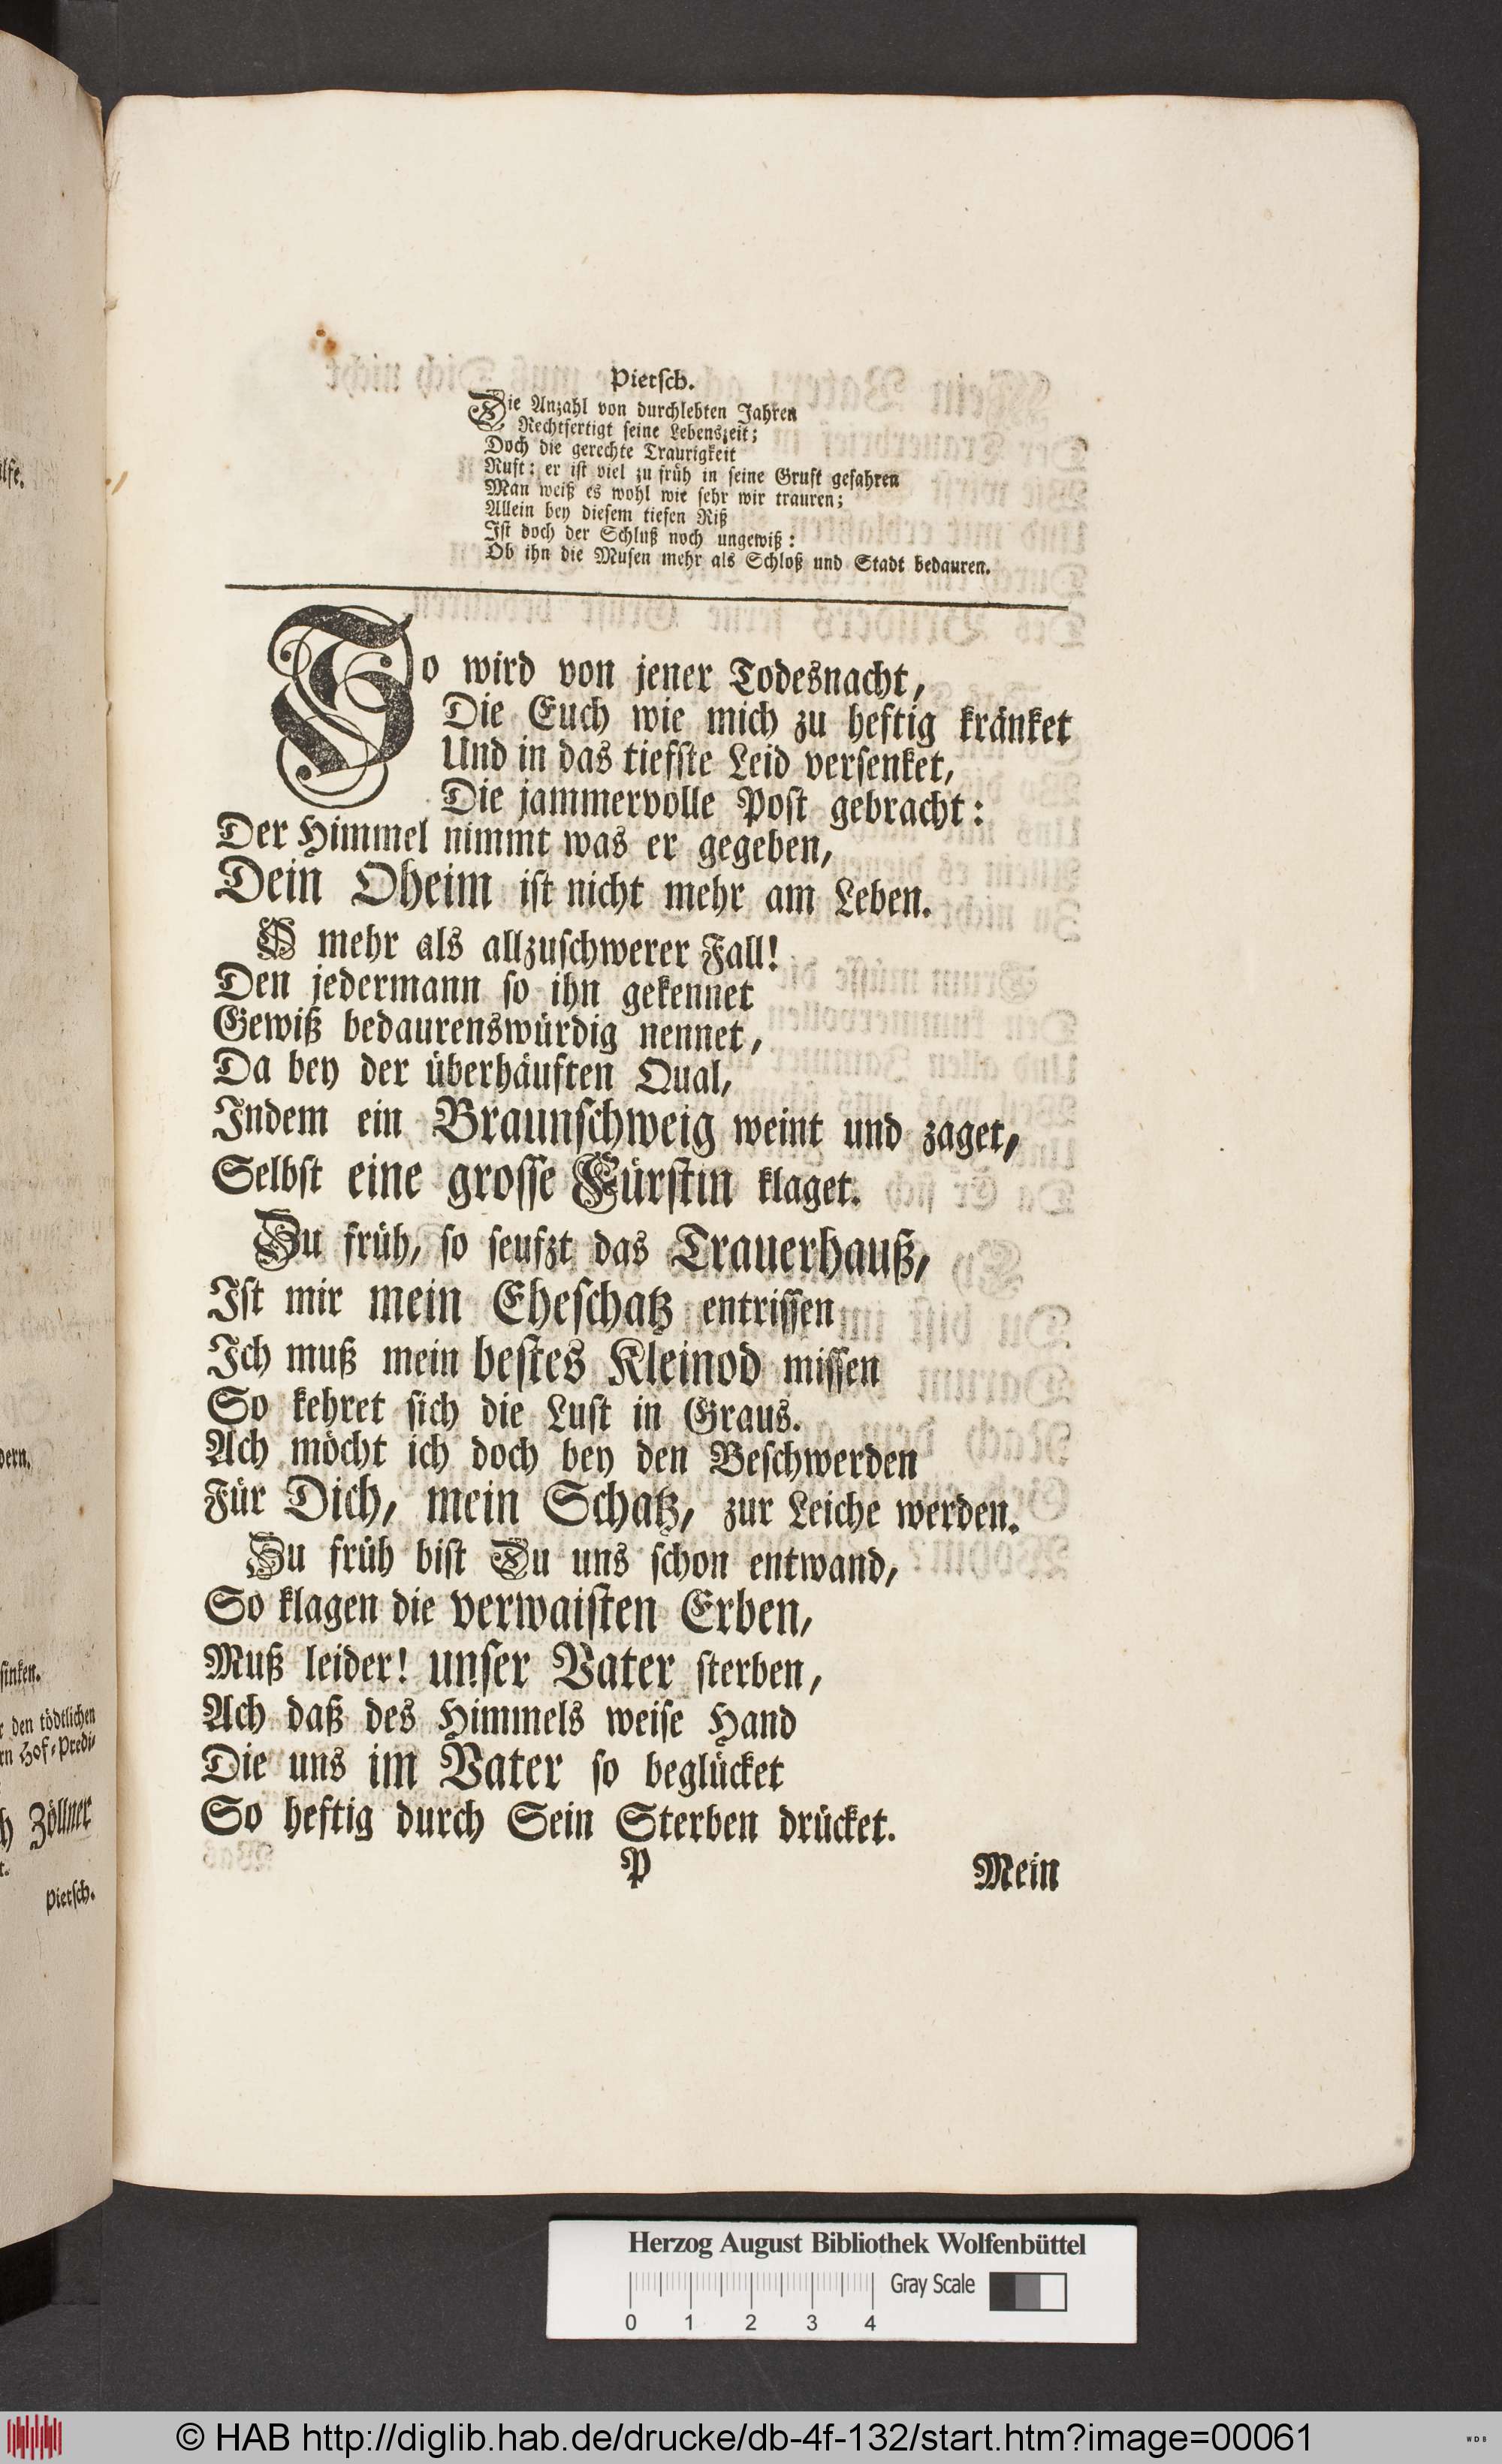 lfe.
dern.
sinken.
r den tödtlichen
rn Hof-Predi-
h Zöllner
t.
Pietsch.
Pietsch.
Die Anzahl von durchlebten Jahren
Rechtfertigt seine Lebenszeit;
Doch die gerechte Traurigkeit
Ruft: er ist viel zu früh in seine Gruft gefahren
Man weiß es wohl wie sehr wir trauren;
Allein bey diesem tiefen Riß
Ist doch der Schluß noch ungewiß:
Ob ihn die Musen mehr als Schloß und Stadt bedauren.
So wird von jener Todesnacht,
Die Euch wie mich zu heftig kränket
Und in das tiefste Leid versenket,
Die jammervolle Post gebracht:
Der Himmel nimmt was er gegeben,
Dein Oheim ist nicht mehr am Leben.
O mehr als allzuschwerer Fall!
Den jedermann so ihn gekennet
Gewiß bedaurenswürdig nennet,
Da bey der überhäuften Qual,
Indem ein Braunschweig weint und zaget,
Selbst eine grosse Fürstin klaget.
Zu früh, so seufzt das Trauerhauß,
Ist mir mein Eheschatz entrissen
Ich muß mein bestes Kleinod missen
So kehret sich die Lust in Graus.
Ach möcht ich doch bey den Beschwerden
Für Dich, mein Schatz, zur Leiche werden.
Zu früh bist Du uns schon entwand,
So klagen die verwaisten Erben,
Muß leider! unser Vater sterben,
Ach daß des Himmels weise Hand
Die uns im Vater so beglücket
So heftig durch Sein Sterben drücket.
P
Mein
Herzog August Bibliothek Wolfenbüttel
Gray Scale
0 1 2 3 4
© HAB http://diglib.hab.de/drucke/db-4f-132/start.htm?image=00061
WDB